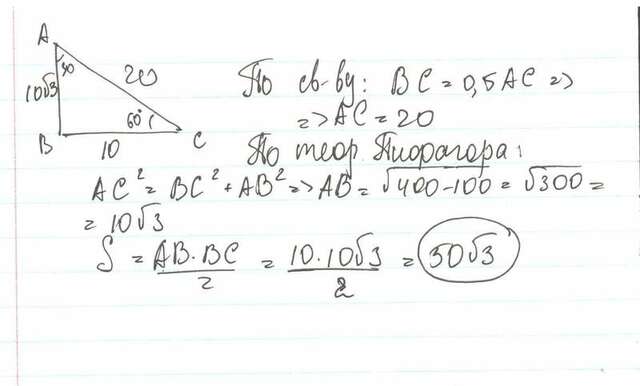 A
30
20
10√3
60°
B
10
C
По св-ву: BC = 0,5AC =>
=> AC = 20
По теор. Пифагора:
AC² = BC² + AB² => AB = √400-100 = √300 =
= 10√3
S = AB·BC/2 = 10·10√3/2 = 50√3